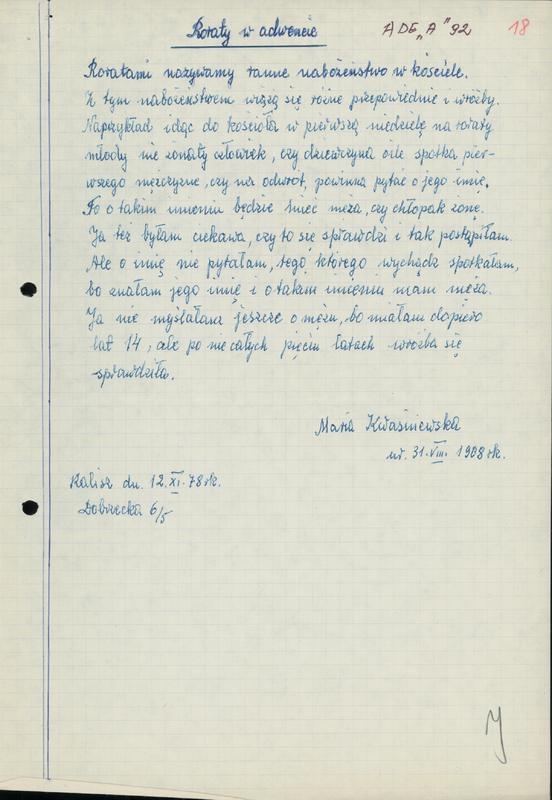 Roraty w adwencie
ADE „A" 92
18
Roratami nazywamy ranne nabożeństwo w kościele.
Z tym nabożeństwem wiążą się różne przepowiednie i wróżby.
Naprzykład idąc do kościoła w pierwszą niedzielę na roraty
młody nie żonaty człowiek, czy dziewczyna o ile spotka pier-
wszego mężczyznę, czy na odwrót, powinna pytać o jego imię.
To o takim imieniu będzie mieć męża, czy chłopak żonę.
Ja też byłam ciekawa, czy to się sprawdzi i tak postąpiłam.
Ale o imię nie pytałam, tego którego wychodząc spotkałam,
bo znałam jego imię i o takim imieniu mam męża.
Ja nie myślałam jeszcze o mężu, bo miałam dopiero
lat 14, ale po niecałych pięciu latach wróżba się
sprawdziła.
Maria Kwaśniewska
ur. 31.VIII. 1908 rk.
Kalisz dn. 12.XI.78 rk.
Dobrzecka 6/5